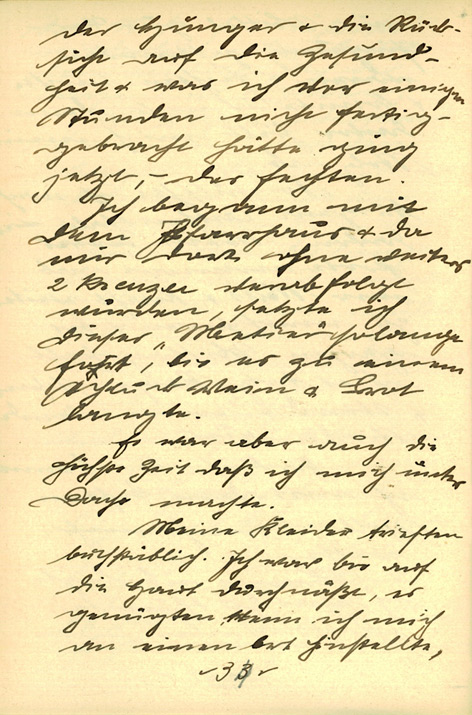 der Hunger & die Rück-
sicht auf die Gesund-
heit & was ich vor einigen
Stunden nicht fertig-
gebracht hätte ging
jetzt, – das fechten.
Ich begann mit
dem Pfarrhaus & da
mir dort ohne weiters
2 Kreuzer verabfolgt
wurden, setzte ich
dieses „Metier" solange
fort, bis es zu einem
Schluck Wein & Brot
langte.
Es war aber auch die
höchste Zeit daß ich mich unter
Dach machte.
Meine Kleider trieften
buchstäblich. Ich war bis auf
die Haut durchnäßt, es
genügten wenn ich mich
an einen Ort hinstellte,
- 33 -